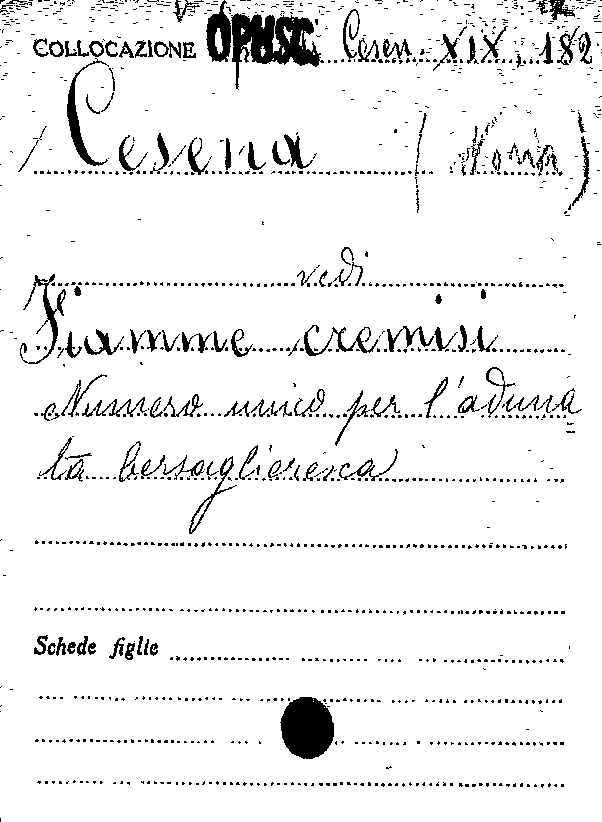 COLLOCAZIONE OPUSC. Cesen. XIX, 182
Cesena
vedi
Fiamme cremisi
Numero unico per l'aduna
ta bersaglieresca
Schede figlie